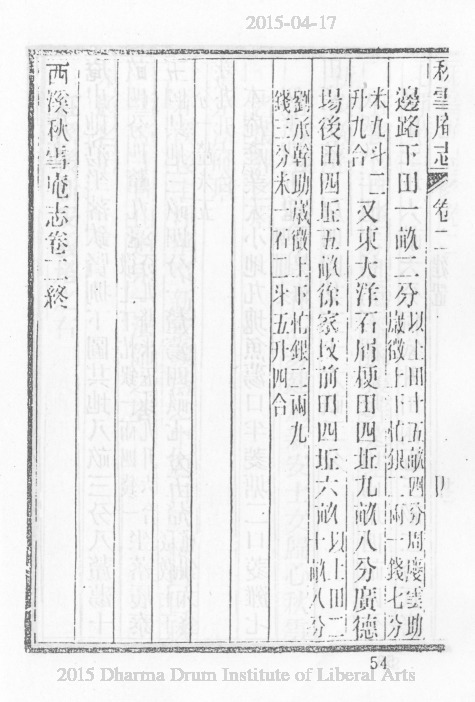 2015-04-17
秋雪庵志 卷二
邊路下田一畝一分以上田十五畝四分周慶雲助
歲徵上下忙銀二兩一錢七分
米九斗二
升九合 又東大洋石屑梗田四坵九畝八分廣德
塲後田四坵五畝徐家坟前田四坵六畝以上田二
十畝八分
劉承幹助歲徵上下忙銀二兩九
錢三分米一石二斗五升四合
西溪秋雪庵志卷二終
54
2015 Dharma Drum Institute of Liberal Arts